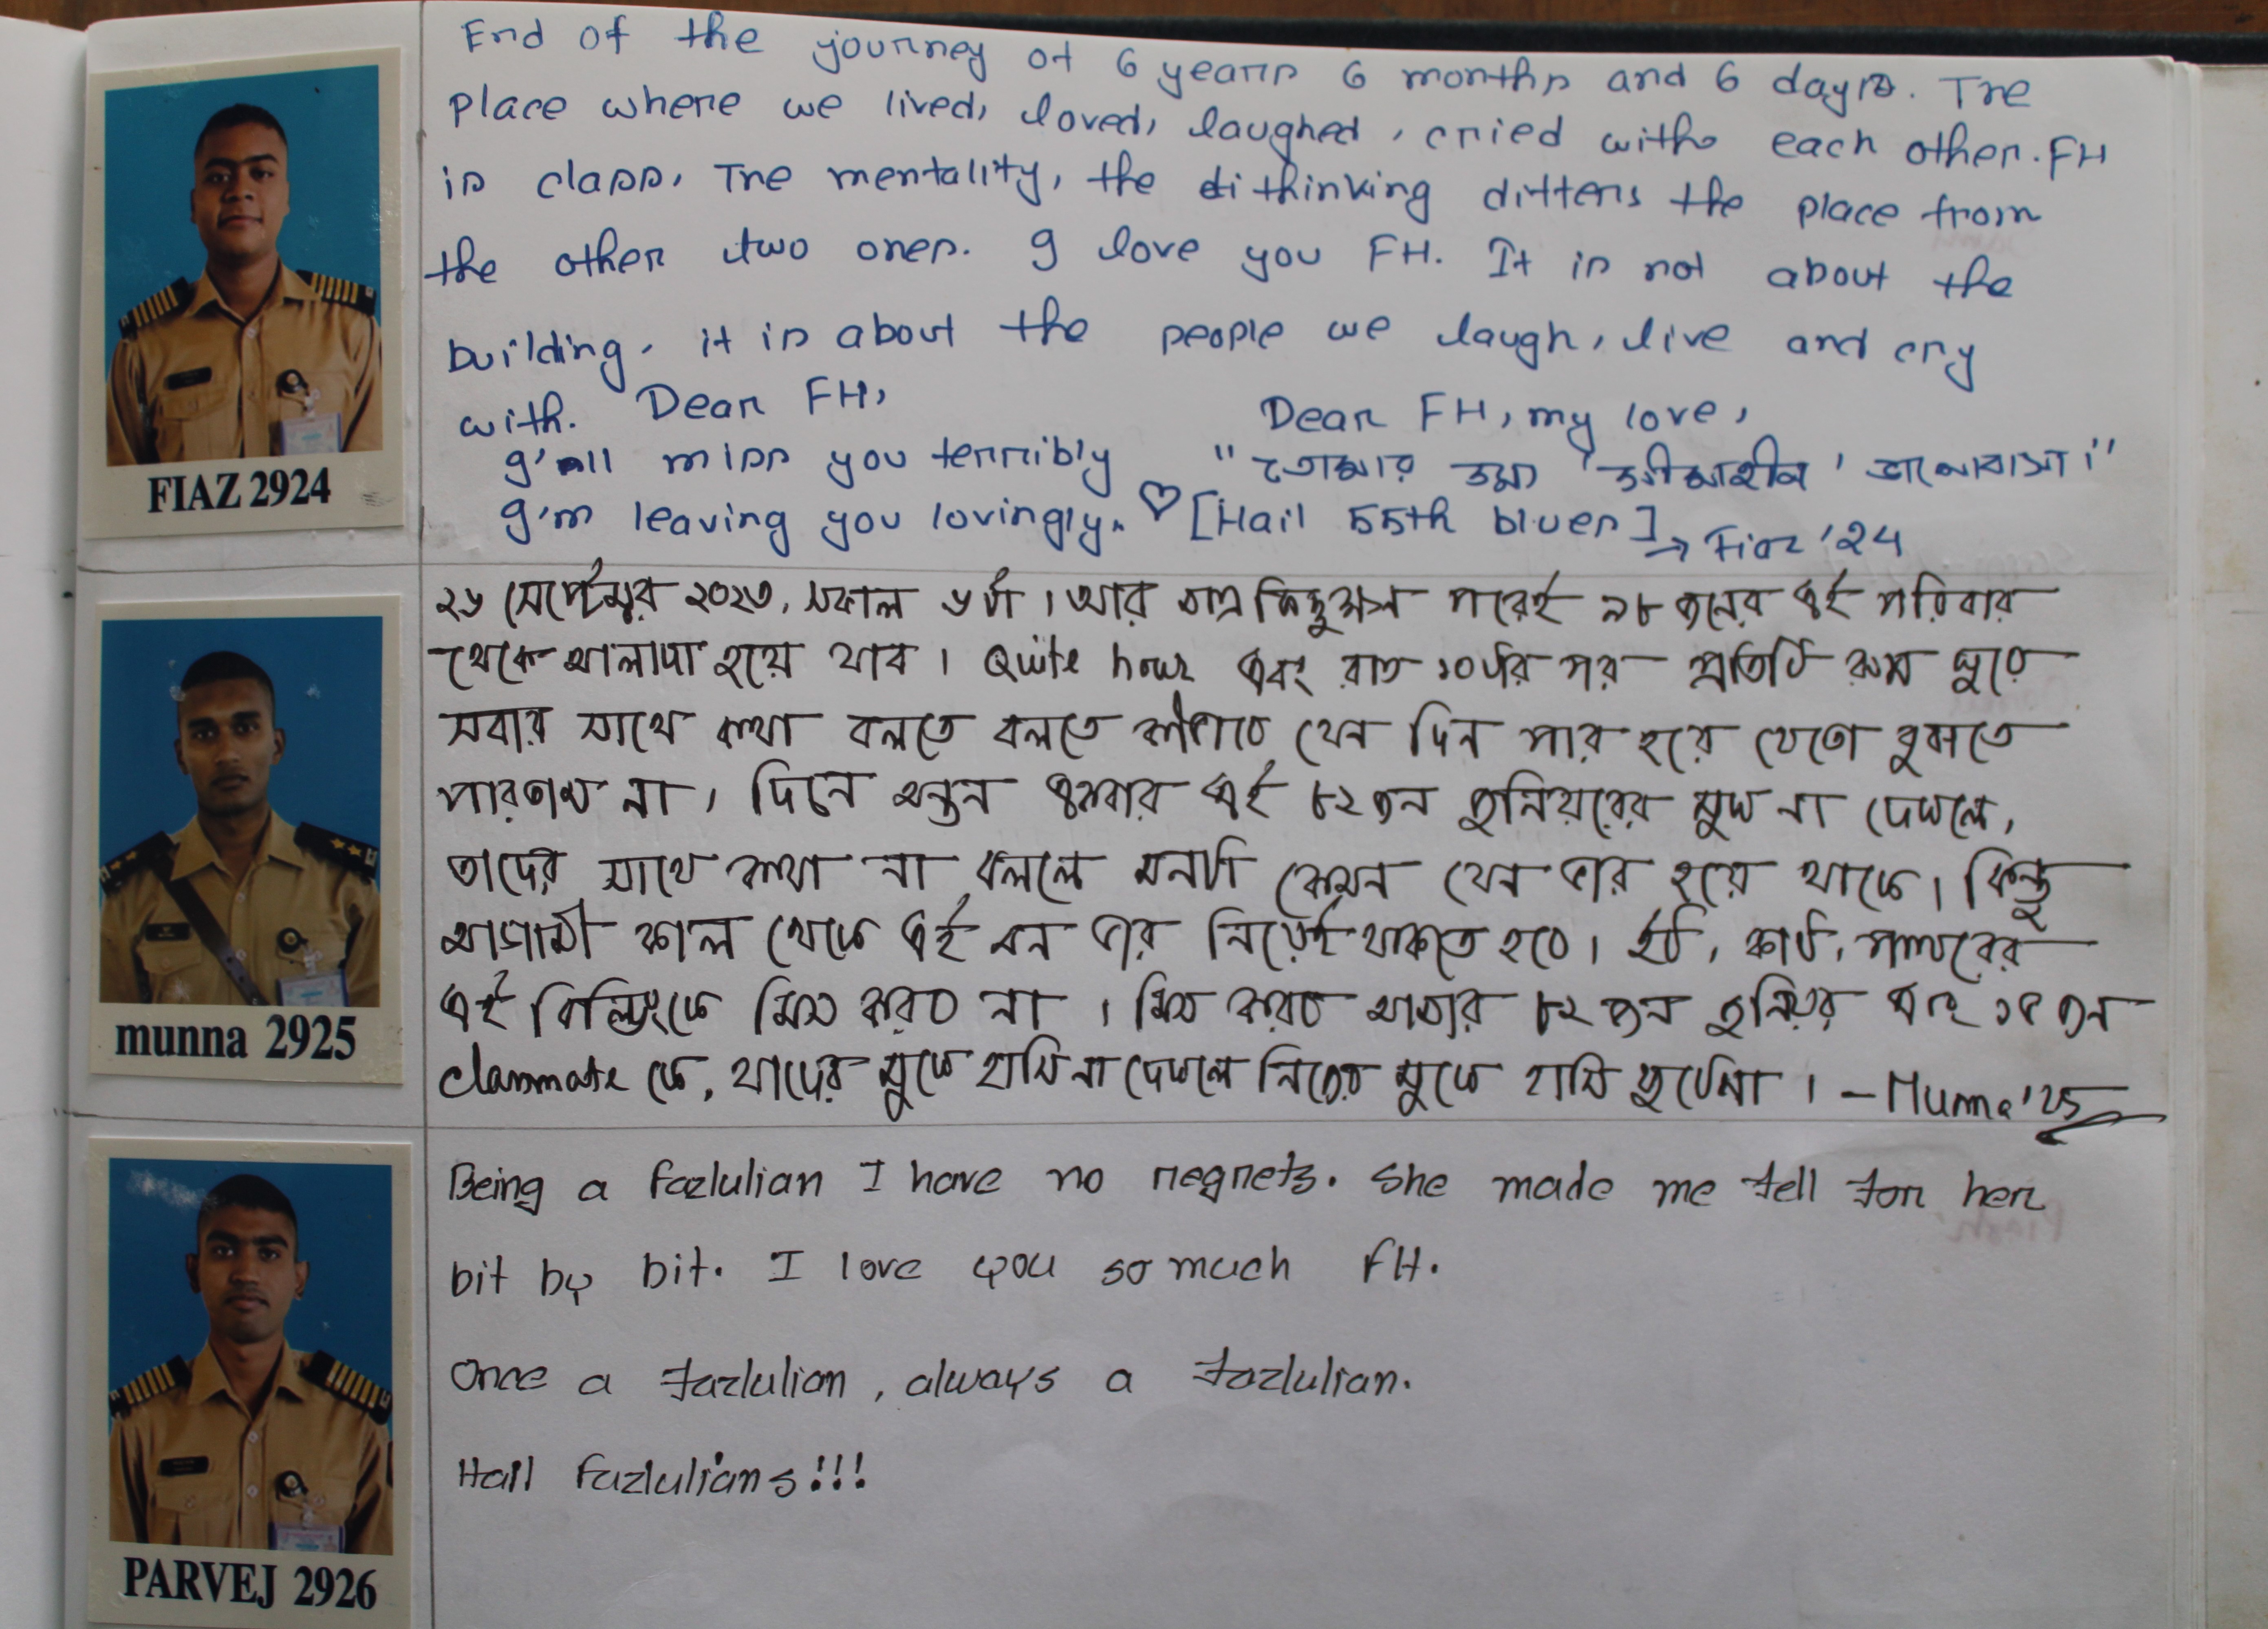 End of the journey of 6 years 6 months and 6 days. The
place where we lived, loved, laughed, cried with each other. FH
is class. The mentality, the thinking differs the place from
the other two ones. I love you FH. It is not about the
building, it is about the people we laugh, live and cry
with. Dear FH,
I'll miss you terribly
I'm leaving you lovingly.
Dear FH, my love,
"তোমার জন্য 'অসীমাহীন' ভালোবাসা।"
♡ [Hail 55th blues] → Fiaz '24
FIAZ 2924
২৬ সেপ্টেম্বর ২০২৩, সকাল ৬টা। আর মাত্র কিছুক্ষণ পরেই ৯৮ জনের এই পরিবার
থেকে আলাদা হয়ে যাব। Quite hour এবং রাত ১০টার পর প্রতিটি রুম ঘুরে
সবার সাথে কথা বলতে বলতে কীভাবে যেন দিন পার হয়ে যেতো বুঝতে
পারতাম না। দিনে অন্তত একবার এই ৮২ জন জুনিয়রের মুখ না দেখলে,
তাদের সাথে কথা না বললে মনটা কেমন যেন ভার হয়ে থাকে। কিন্তু
আগামী কাল থেকে এই মন ভার নিয়েই থাকতে হবে। ইট, কাঠ, পাথরের
এই বিল্ডিংকে মিস করব না। মিস করব আমার ৮২ জন জুনিয়র এবং ১৫ জন
classmate কে, যাদের মুখে হাসি না দেখলে নিজের মুখে হাসি ফুটেনা। - Munna '25
munna 2925
Being a fazlulian I have no regrets. She made me fell for her
bit by bit. I love you so much FH.
Once a fazlulian, always a fazlulian.
Hail fazlulians!!!
PARVEJ 2926